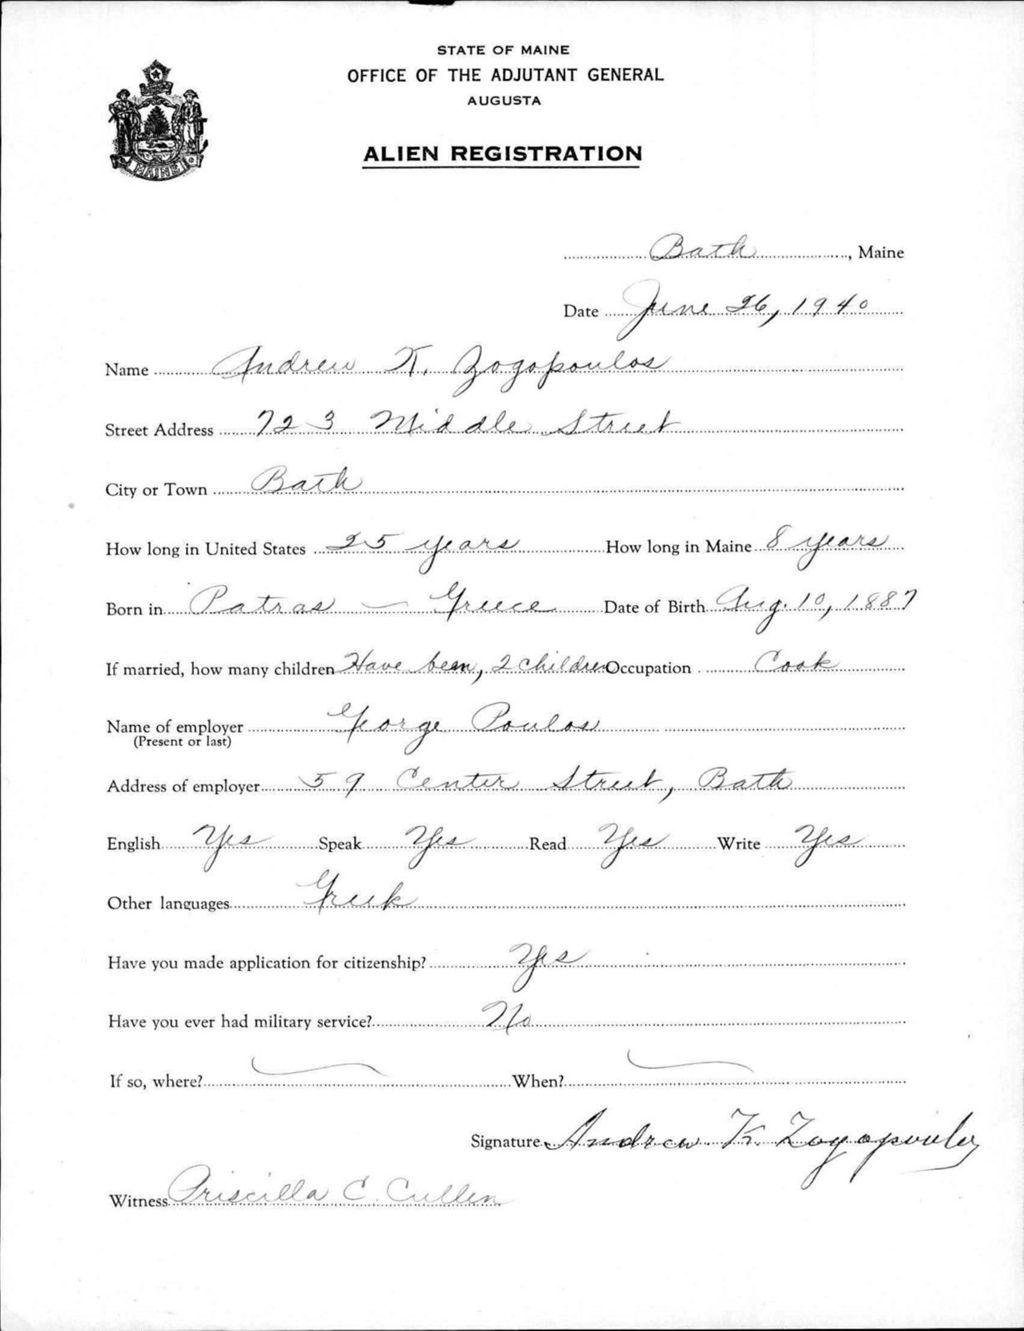 STATE OF MAINE
OFFICE OF THE ADJUTANT GENERAL
AUGUSTA
ALIEN REGISTRATION
MAINE
Bath, Maine
Date June 26, 1940
Name Andrew K. Zogopoulos
Street Address 723 Middle Street
City or Town Bath
How long in United States 25 years How long in Maine 8 years
Born in Patras — Greece Date of Birth Aug. 10, 1887
If married, how many children Have been, 2 children Occupation Cook
Name of employer George Poulos
(Present or last)
Address of employer 59 Center Street, Bath
English Yes Speak Yes Read Yes Write Yes
Other languages Greek
Have you made application for citizenship? Yes
Have you ever had military service? No
If so, where? — When? —
Signature Andrew K. Zogopoulos
Witness Priscilla C. Cullen